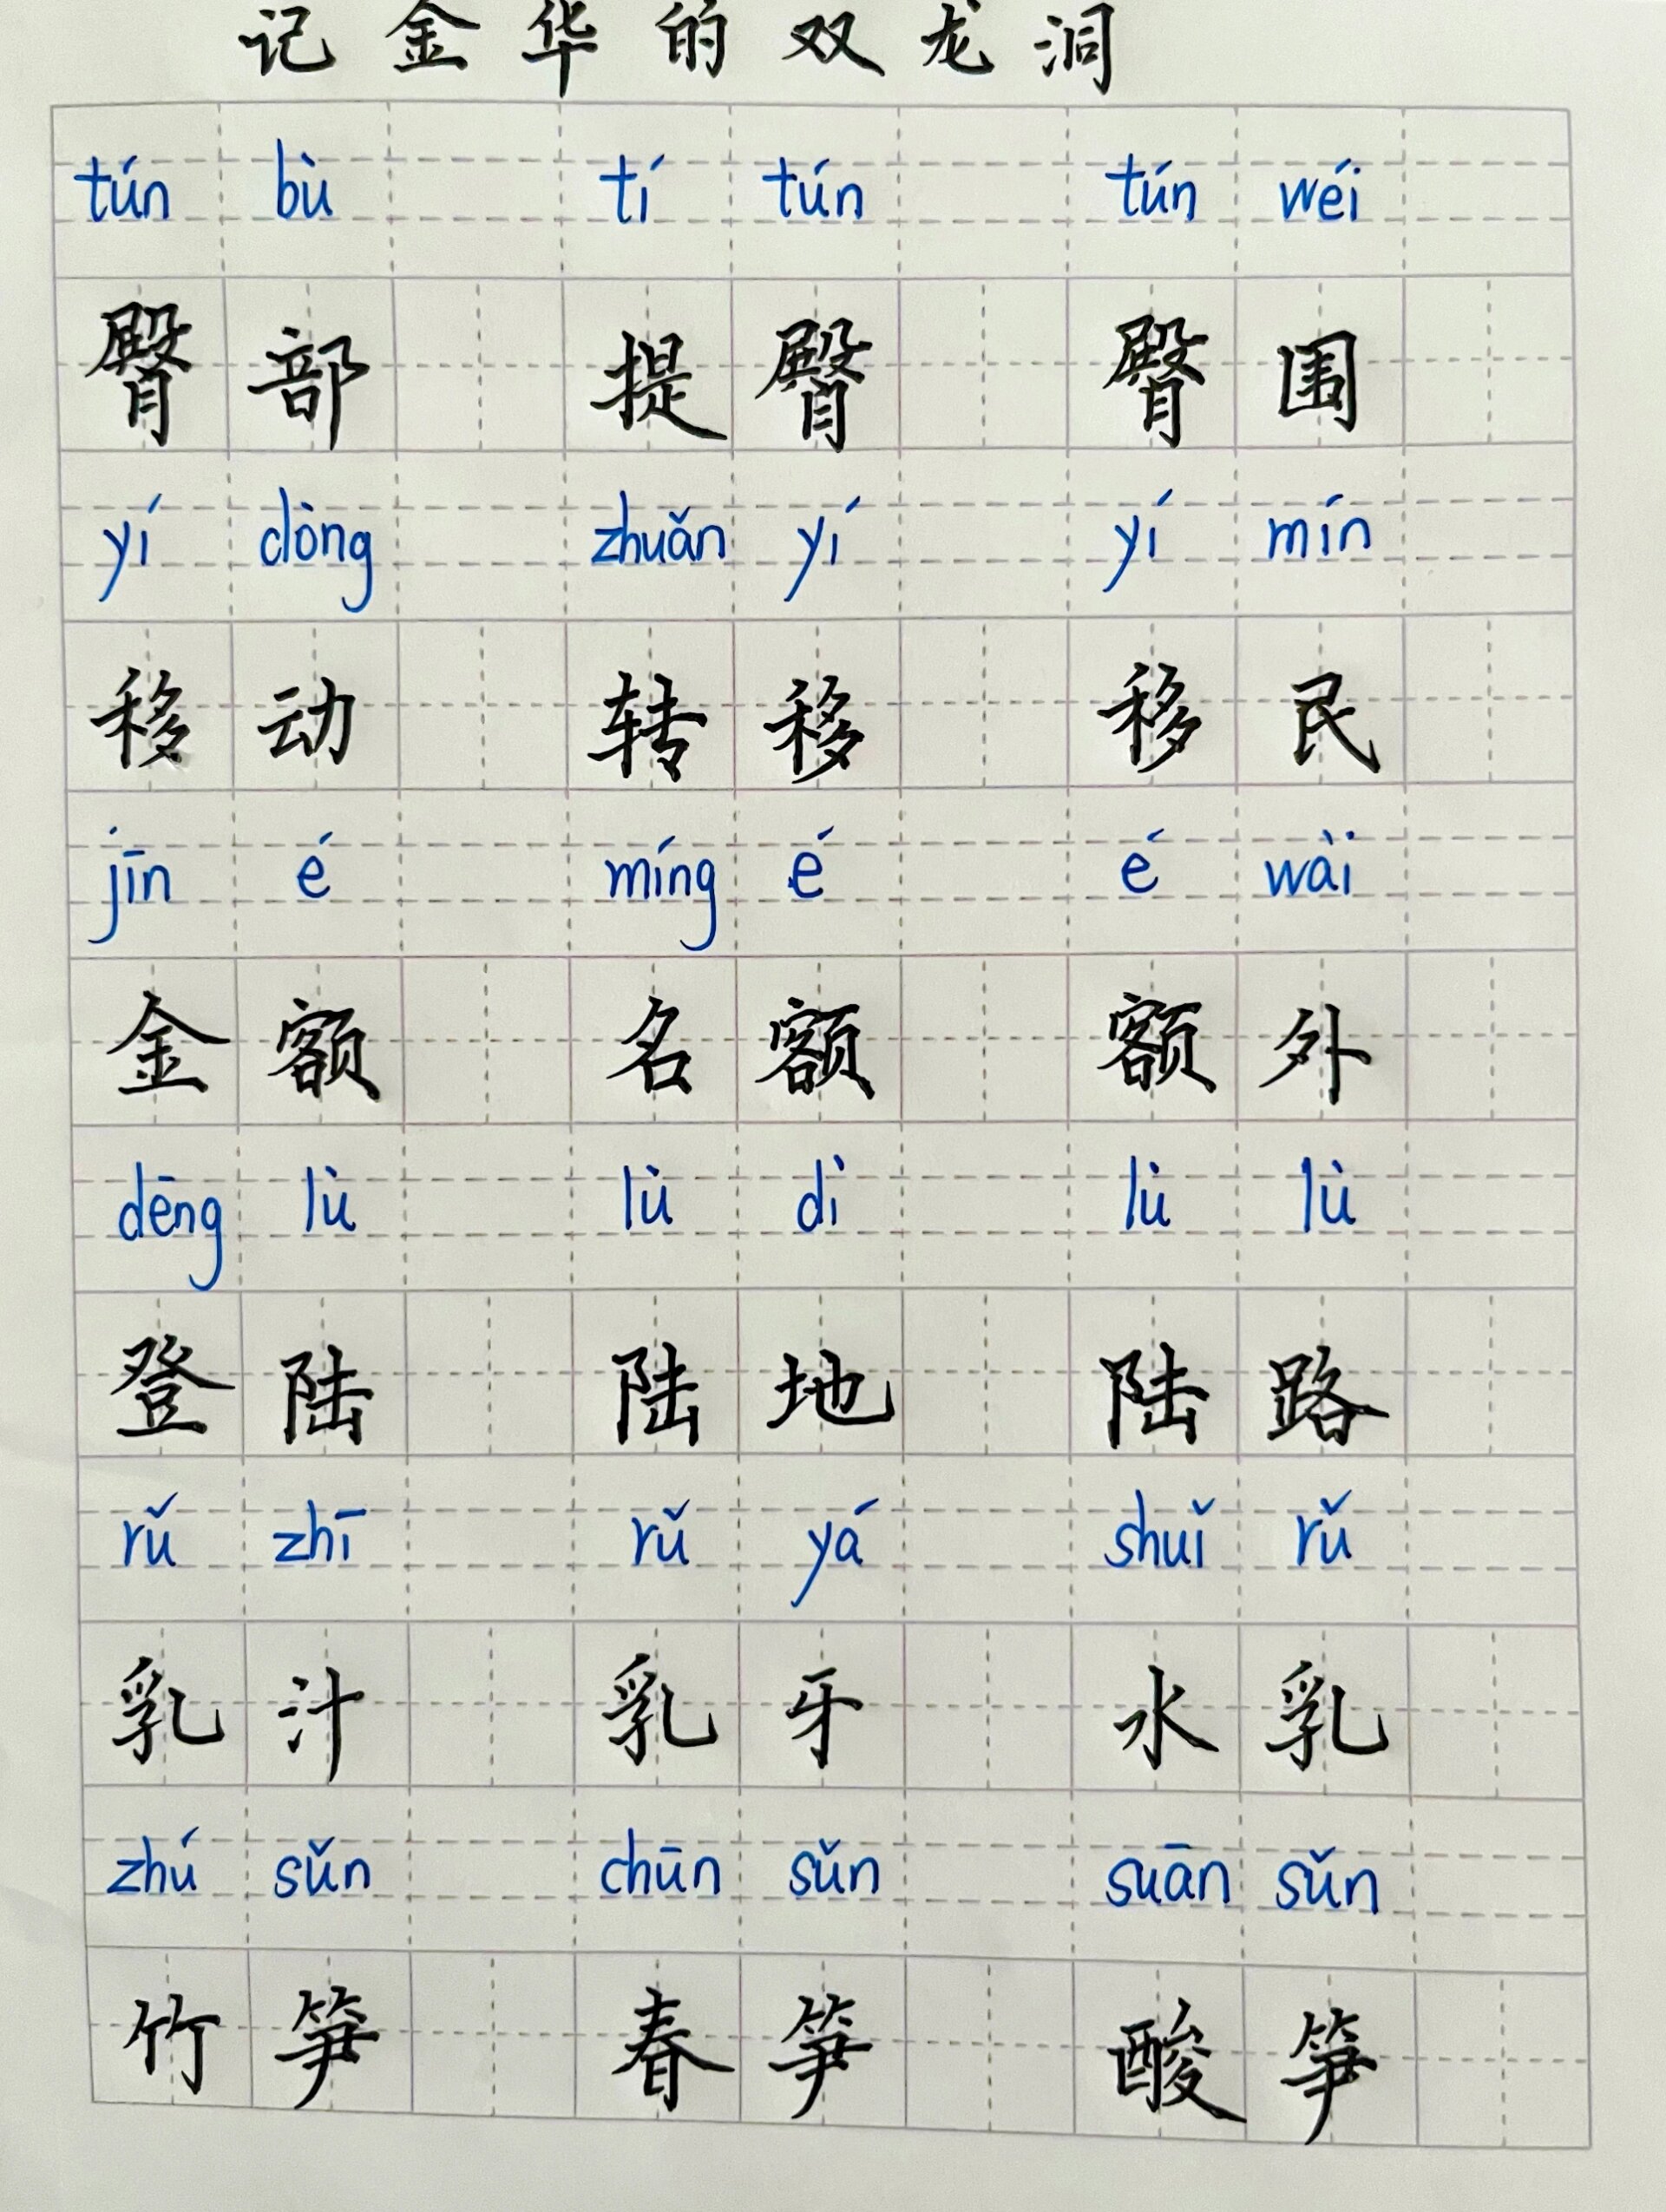 记金华的双龙洞
tún bù tí tún tún wéi
臀部 提臀 臀围
yí dòng zhuǎn yí yí mín
移动 转移 移民
jīn é míng é é wài
金额 名额 额外
dēng lù lù dì lù lù
登陆 陆地 陆路
rǔ zhī rǔ yá shuǐ rǔ
乳汁 乳牙 水乳
zhú sǔn chūn sǔn suān sǔn
竹笋 春笋 酸笋